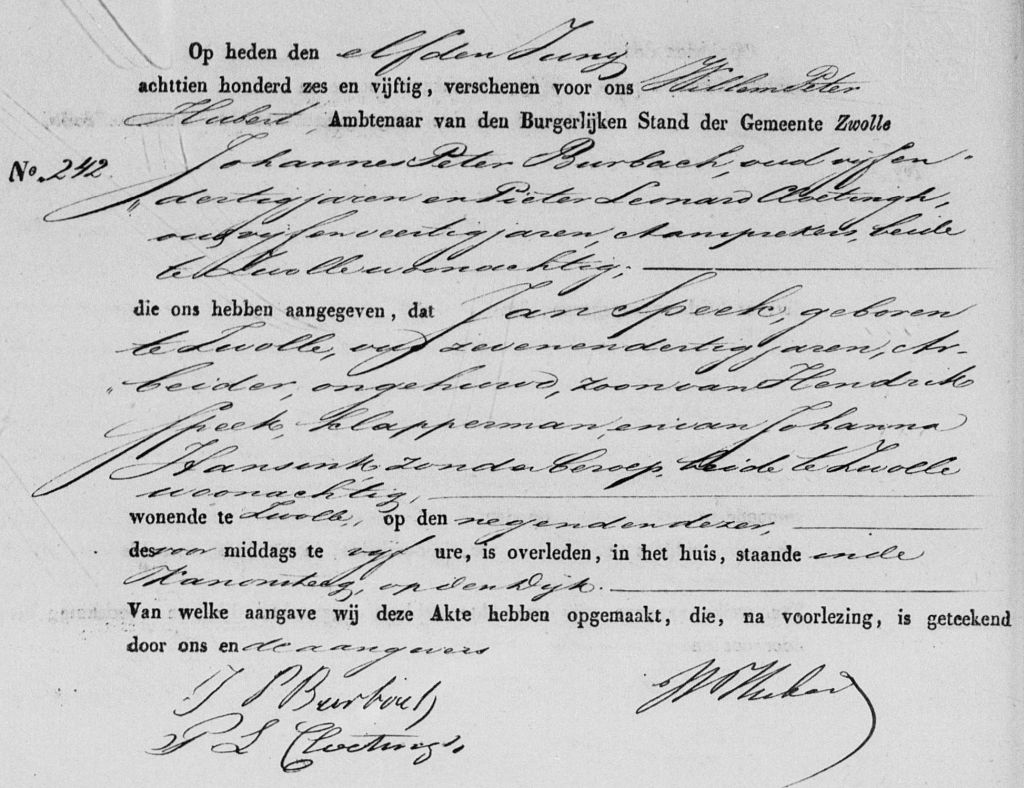 Op heden den elfden Juny
achttien honderd zes en vijftig, verschenen voor ons Willem Peter
Hubert, Ambtenaar van den Burgerlijken Stand der Gemeente Zwolle
No. 242. Johannes Peter Burbach, oud vijfen
„dertig jaren en Pieter Leonard Cloetingh,
oud vijfenveertig jaren, Aansprekers, beide
te Zwolle woonachtig;
die ons hebben aangegeven, dat Jan Speek, geboren
te Zwolle, oud zevenendertig jaren, Ar-
„beider, ongehuwd, zoon van Hendrik
Speek, klapperman, en van Johanna
Hansink, zonder beroep, beide te Zwolle
woonachtig,
wonende te Zwolle, op den negenden dezer,
des voor middags te vijf ure, is overleden, in het huis, staande in de
Kanonsteeg, op den Dijk.
Van welke aangave wij deze Akte hebben opgemaakt, die, na voorlezing, is geteekend
door ons en de aangevers
J P Burbach
W P Hubert
P L Cloetingh